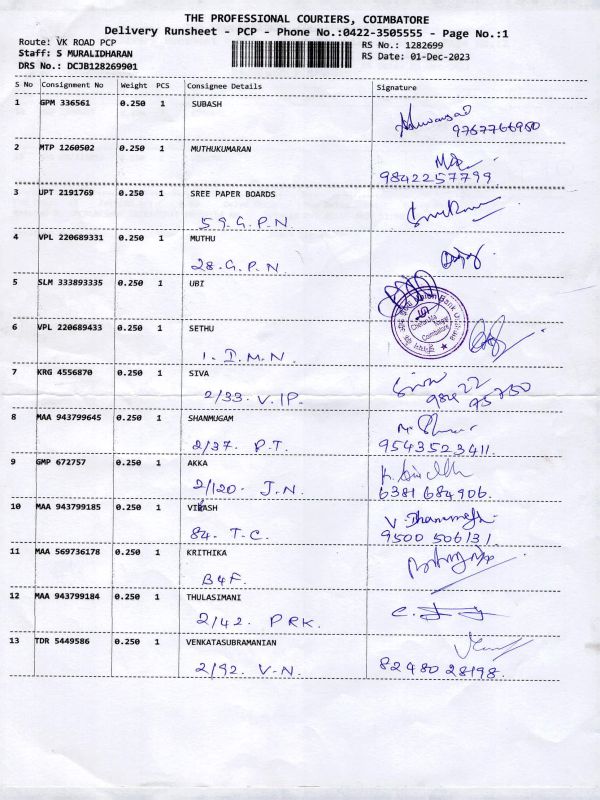 THE PROFESSIONAL COURIERS, COIMBATORE
Delivery Runsheet - PCP - Phone No.:0422-3505555 - Page No.:1
Route: VK ROAD PCP
RS No.: 1282699
Staff: S MURALIDHARAN
RS Date: 01-Dec-2023
DRS No.: DCJB128269901
S No Consignment No Weight PCS Consignee Details Signature
1 GPM 336561 0.250 1 SUBASH
9767766960
2 MTP 1260502 0.250 1 MUTHUKUMARAN
9842257799
3 UPT 2191769 0.250 1 SREE PAPER BOARDS
59.G.P.N
4 VPL 220689331 0.250 1 MUTHU
28.G.P.N
5 SLM 333893335 0.250 1 UBI
Union Bank
Coimbatore
6 VPL 220689433 0.250 1 SETHU
1. D.M.N.
7 KRG 4556870 0.250 1 SIVA
2/33. V.IP.
8 MAA 943799645 0.250 1 SHANMUGAM
2/37. P.T. 9543523411.
9 GMP 672757 0.250 1 AKKA
2/120. J.N. 6381 684906.
10 MAA 943799185 0.250 1 VIKASH
84. T.C. 9500 506131.
11 MAA 569736178 0.250 1 KRITHIKA
B4F.
12 MAA 943799184 0.250 1 THULASIMANI
2/42. PRK.
13 TDR 5449586 0.250 1 VENKATASUBRAMANIAN
2/92. V-N. 82480 28198.